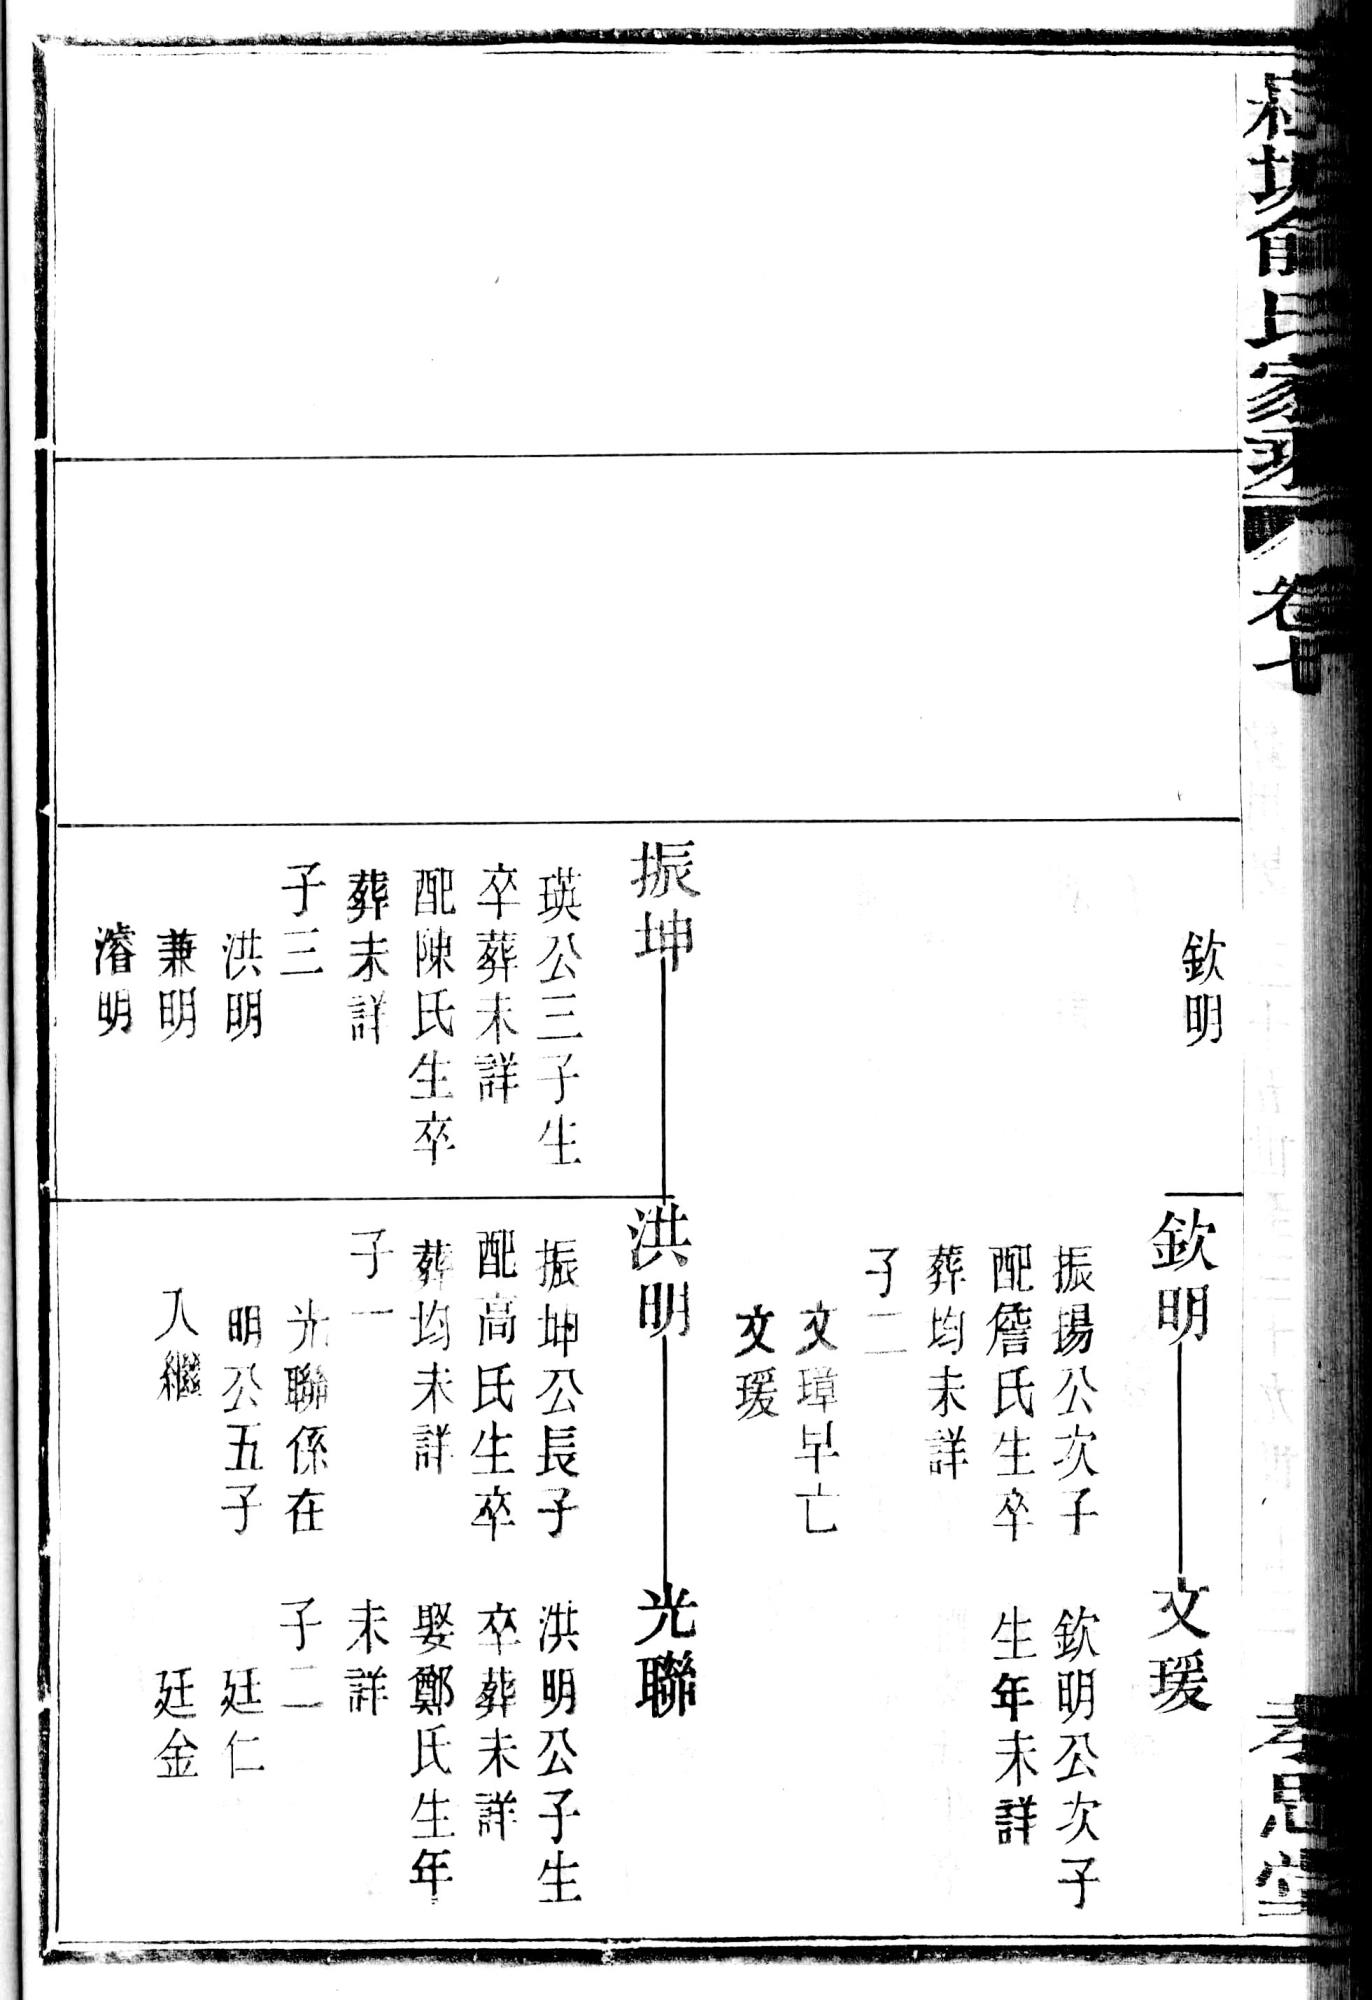 俞氏家乘
卷七
孝思堂
欽明
振坤
瑛公三子生
卒葬未詳
配陳氏生卒
葬未詳
子三
洪明
兼明
濬明
欽明
振揚公次子
配詹氏生卒
葬均未詳
子二
文璋早亡
文瑗
洪明
振坤公長子
配高氏生卒
葬均未詳
子一
光聯係在
明公五子
入繼
文瑗
欽明公次子
生年未詳
光聯
洪明公子生
卒葬未詳
娶鄭氏生年
未詳
子二
廷仁
廷金